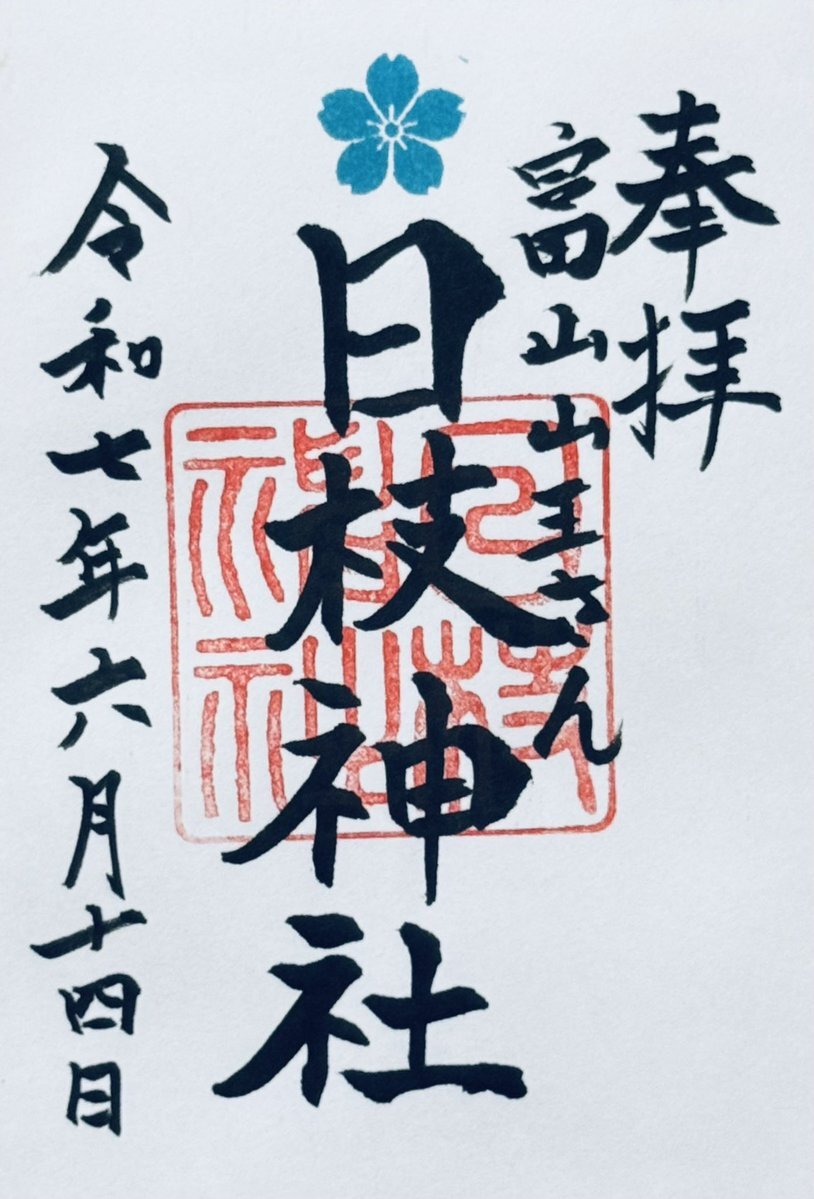 奉拝
富山山王さん
日枝神社
日枝神社
令和七年六月十四日